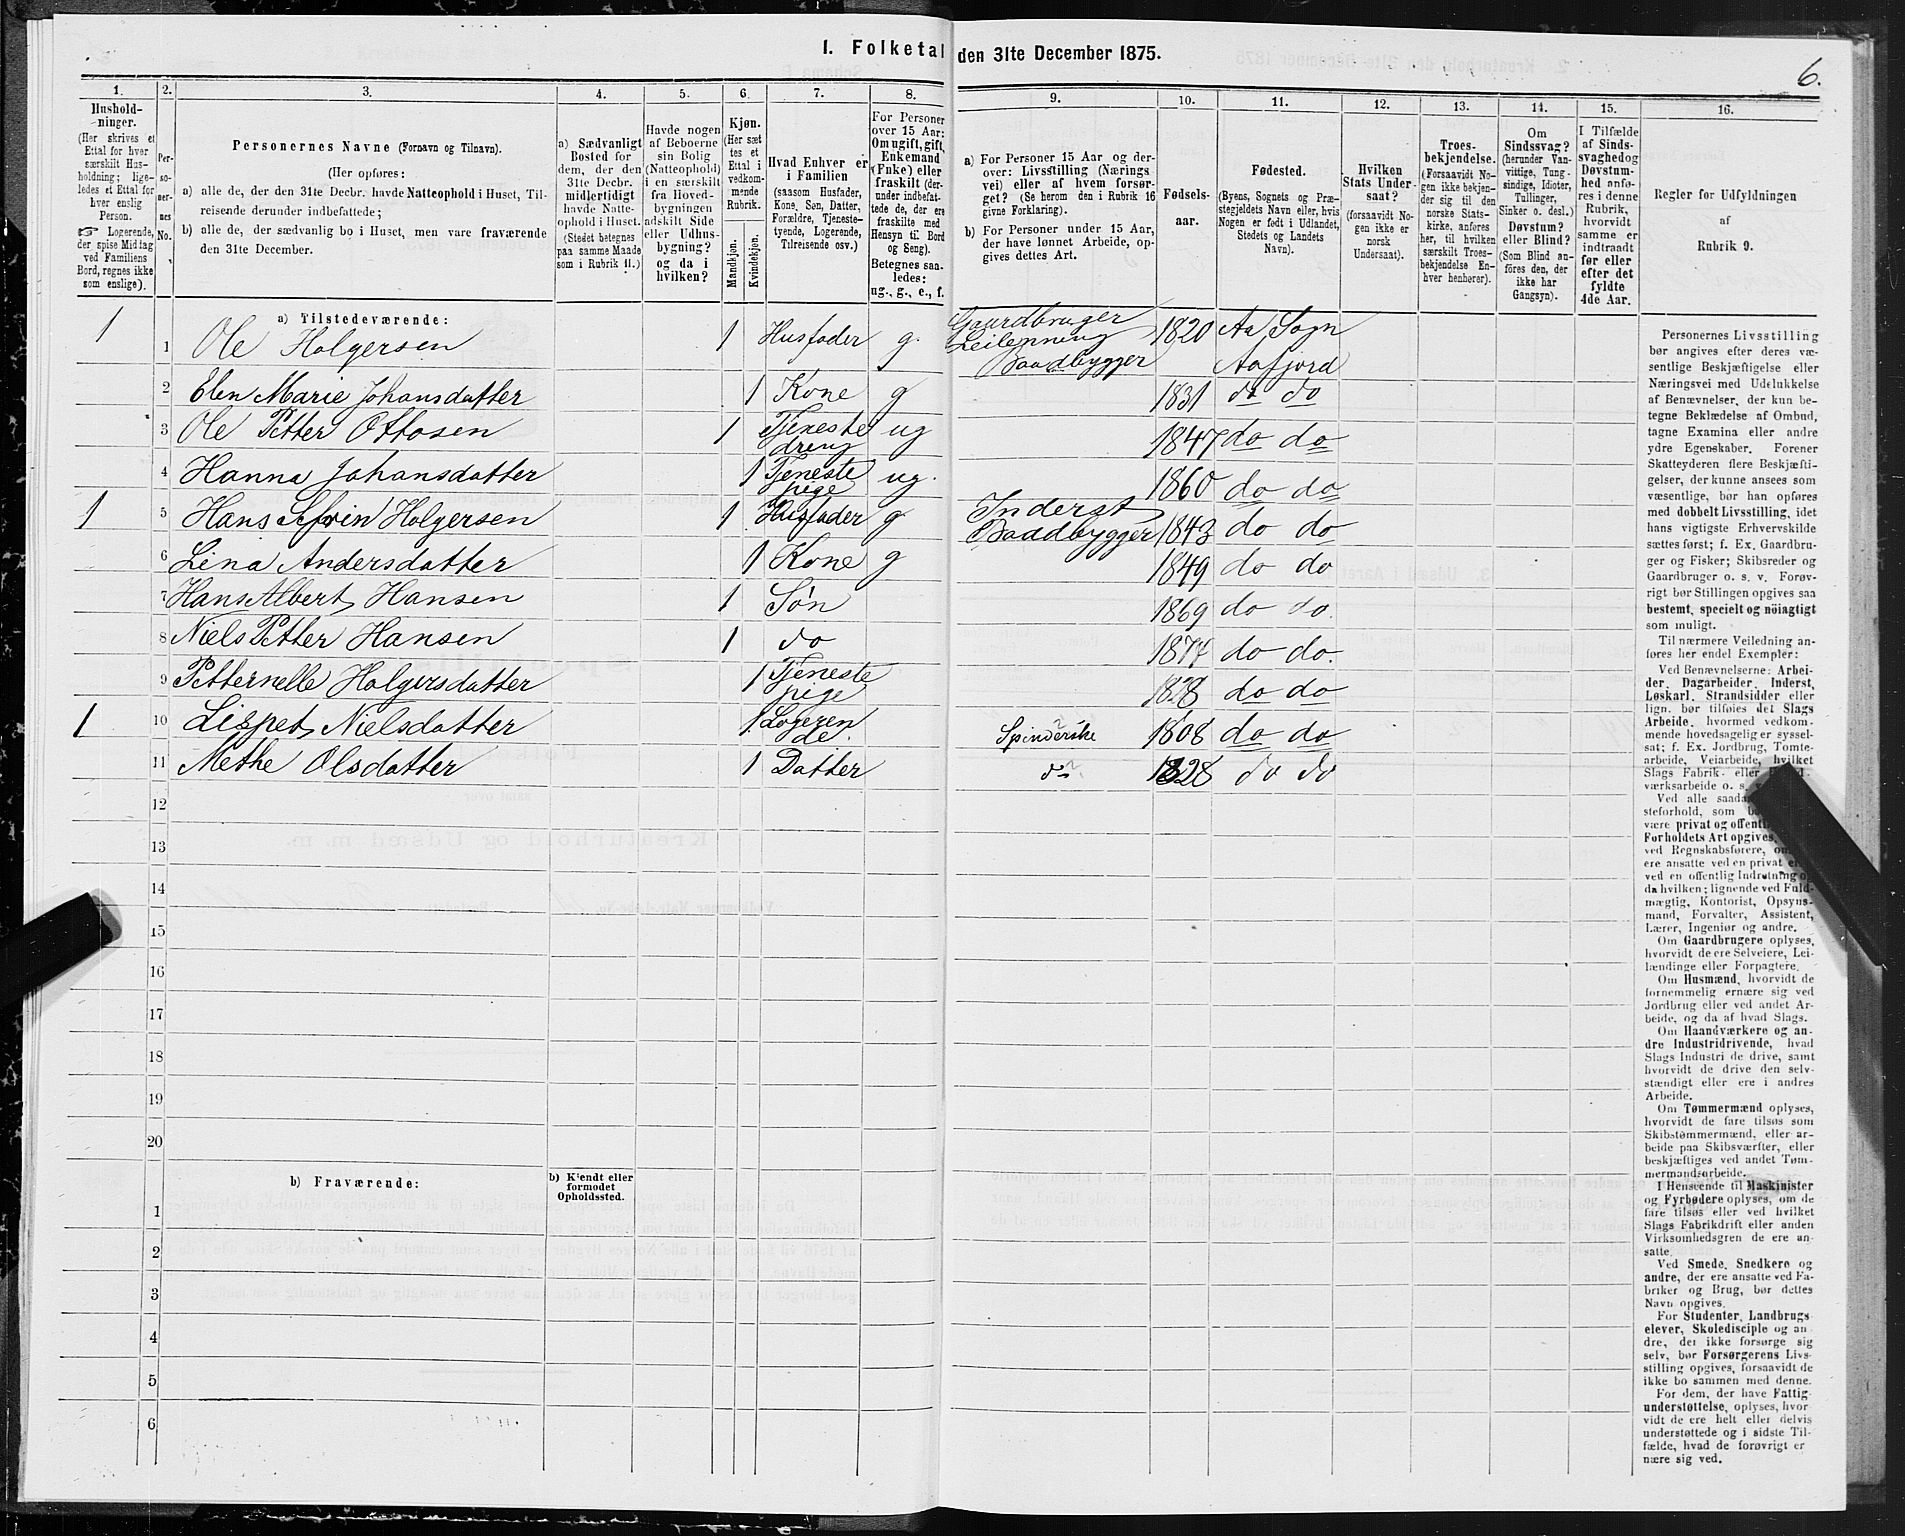 1. Folketal den 31te December 1875.
6.
1.
2.
3.
4.
5.
6.
7.
8.
9.
10.
11.
12.
13.
14.
15.
16.
Hushold-
ninger.
(Her skrives et
Ettal for hver
særskilt Hus-
holdning; lige-
ledes et Ettal for
hver enslig
Person.
☞ Logerende,
der spise Middag
ved Familiens
Bord, regnes ikke
som enslige).
Per-
so-
ner-
nes
No.
Personernes Navne (Fornavn og Tilnavn).
(Her opføres:
a) alle de, der den 31te Decbr. havde Natteophold i Huset, Til-
reisende derunder indbefattede;
b) alle de, der sædvanlig bo i Huset, men vare fraværende
den 31te December.
a) Sædvanligt
Bosted for
dem, der den
31te Decbr.
midlertidigt
havde Natte-
ophold i Huset.
(Stedet betegnes
paa samme Maade
som i Rubrik 11.)
Havde nogen
af Beboerne
sin Bolig
(Natteophold)
i en særskilt
fra Hoved-
bygningen
adskilt Side
eller Udhus-
bygning?
og da i
hvilken?
Kjøn.
(Her sæt
tes et
Ettal i
vedkom-
mende
Rubrik.
Mandkjøn.
Kvindekjøn.
Hvad Enhver er
i Familien
(saasom Husfader,
Kone, Søn, Datter,
Forældre, Tjeneste-
tyende, Logerende,
Tilreisende osv.)
For Personer
over 15 Aar:
Om ugift, gift,
Enkemand
(Enke) eller
fraskilt (der-
under indbefat-
tede de, der ere
fraskilte med
Hensyn til Bord
og Seng).
Betegnes saa-
ledes:
ug., g., e., f.
a) For Personer 15 Aar og der-
over: Livsstilling (Nærings
vei) eller af hvem forsør-
get? (Se herom den i Rubrik 16
givne Forklaring).
b) For Personer under 15 Aar,
der have lønnet Arbeide, op-
gives dettes Art.
Fødsels-
aar.
Fødested.
(Byens, Sognets og Præ-
stegjeldets Navn eller, hvis
Nogen er født i Udlandet,
Stedets og Landets
Navn).
Hvilken
Stats Under-
saat?
(forsaavidt No-
gen ikke er
norsk
Undersaat).
Troes-
bekjendelse.
(Forsaavidt No-
gen ikke bekjen-
der sig til den
norske Stats-
kirke, anføres
her, til hvilken
særskilt Troes-
bekjendelse En-
hver henhører).
Om
Sindssvag?
(herunder Van-
vittige, Tung-
sindige, Idioter,
Tullinger,
Sinker o. desl.)
Døvstum?
eller Blind?
(Som Blind an-
føres den, der
ikke har
Gangsyn).
I Tilfælde
af Sinds-
svaghed og
Døvstum-
hed anfø-
res i denne
Rubrik,
hvorvidt
samme er
indtraadt
før eller
efter det
fyldte
4de Aar.
Regler for Udfyldningen
af
Rubrik 9.
a) Tilstedeværende:
1 1 Ole Holgersen 1 Husfader g. Gaardbruger Leilenning Baadbygger 1820 Aa Sogn Aafjord
2 Elen Marie Johansdatter 1 Kone g 1831 do do
3 Ole Petter Ottosen 1 Tjeneste dreng ug 1847 do do
4 Hanna Johansdatter 1 Tjeneste pige ug. 1860 do do
1 5 Hans Holgersen 1 Husfader g Inderst Baadbygger 1843 do do
6 Lina Andersdatter 1 Kone g 1849 do do
7 Hans Albert Hansen 1 Søn 1869 do do.
8 Niels Petter Hansen 1 do 1874 do do.
9 Petternelle Holgersdatter 1 Tjeneste pige do do
1 10 Lispet Nielsdatter 1 Logeren de. Spinderske 1808 do do
11 Methe Olsdatter 1 Datter do 1828 do do
12
13
14
15
16
17
18
19
20
b) Fraværende:
b) Kjendt eller
formodet
Opholdssted.
1
2
3
4
5
6
Personernes Livsstilling
bør angives efter deres væ-
sentlige Beskjæftigelse eller
Næringsvei med Udelukkelse
af Benævnelser, der kun be-
tegne Beklædelse af Ombud,
tagne Examina eller andre
ydre Egenskaber. Forener
Skatteyderen flere Beskjæfti-
gelser, der kunne ansees som
væsentlige, bør han opføres
med dobbelt Livsstilling, idet
hans vigtigste Erhvervskilde
sættes først; f. Ex. Gaardbru-
ger og Fisker; Skibsreder og
Gaardbruger o. s. v. Forøv-
rigt bør Stillingen opgives saa
bestemt, specielt og nöiagtigt
som muligt.
Til nærmere Veiledning an-
føres her endel Exempler:
Ved Benævnelserne: Arbei-
der, Dagarbeider, Inderst,
Løskarl, Strandsidder eller
lign. bør tilføies det Slags
Arbeide, hvormed vedkom-
mende hovedsagelig er syssel-
sat; f. Ex. Jordbrug, Tomte-
arbeide, Veiarbeide, hvilket
Slags Fabrik- eller
værksarbeide o. s. v.
Ved alle
steforhold, som
være privat og
Forholdets Art opgives,
ved Regnskabsførere,
ere ansatte ved en privat
ved en offentlig Indretning og
da hvilken; lignende ved Fuld-
mægtig, Kontorist, Opsyns-
mand, Forvalter, Assistent,
Lærer, Ingeniør og andre.
Om Gaardbrugere oplyses,
hvorvidt de ere Selveiere, Lei-
lændinge eller Forpagtere.
Om Husmænd, hvorvidt de
fornemmelig ernære sig ved
Jordbrug eller ved andet Ar-
beide, og da af hvad Slags.
Om Haandværkere og an-
dre Industridrivende, hvad
Slags Industri de drive, samt
hvorvidt de drive den selv-
stændigt eller ere i andres
Arbeide.
Om Tømmermænd oplyses,
hvorvidt de fare tilsøs som
Skibstømmermænd, eller ar-
beide paa Skibsværfter, eller
beskjæftiges ved andet Tøm-
mermandsarbeide.
I Henseende til Maskinister
og Fyrbødere oplyses, om de
fare tilsøs eller ved hvilket
Slags Fabrikdrift eller anden
Virksomhedsgren de ere an-
satte.
Ved Smede, Snedkere og
andre, der ere ansatte ved Fa-
briker og Brug, bør dettes
Navn opgives.
For Studenter, Landbrugs
elever, Skoledisciple og an
dre, der ikke forsørge sig
selv, bør Forsørgerens Livs-
stilling opgives, forsaavidt de
ikke bo sammen med denne.
For dem, der have Fattig-
understøttelse, oplyses, hvor-
vidt de ere helt eller delvis
understøttede og i sidste Til-
fælde, hvad de forøvrigt er
nære sig ved.